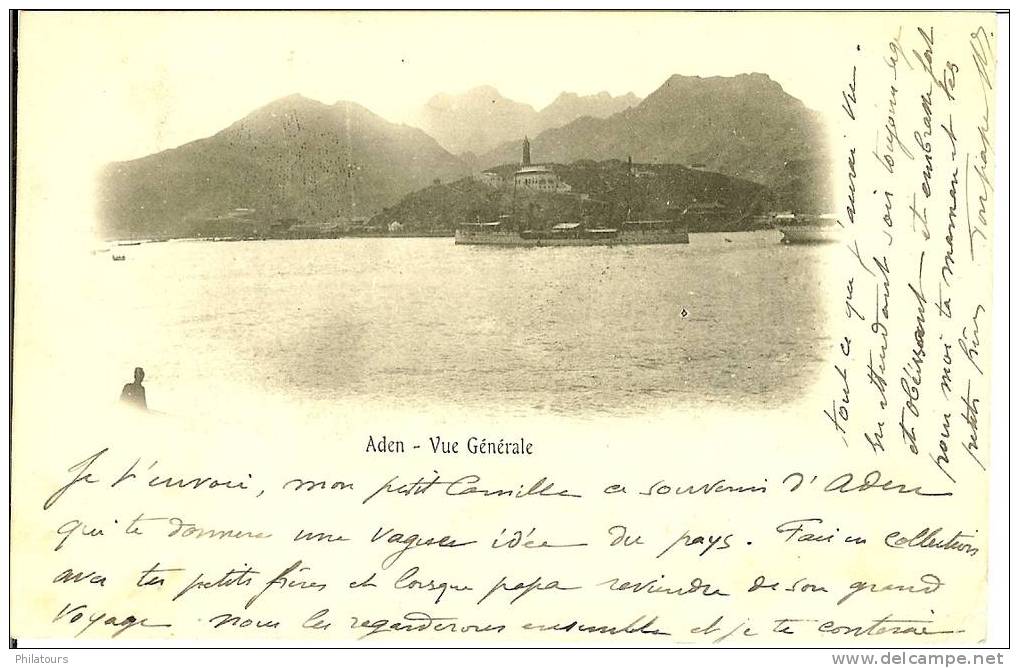 Aden - Vue Générale
Je t'envoie, mon petit Camille ce souvenir d'Aden
qui te donnera une vague idée du pays. Fais en collection
avec tes petits frères et lorsque papa reviendra de son grand
voyage nous les regarderons ensemble et je te conterai
tout ce que j'aurai vu.
En attendant sois toujours sage
et obéissant et embrasse fort
pour moi ta maman et tes
petits frères Ton papa
Philatours
http://www.delcampe.net